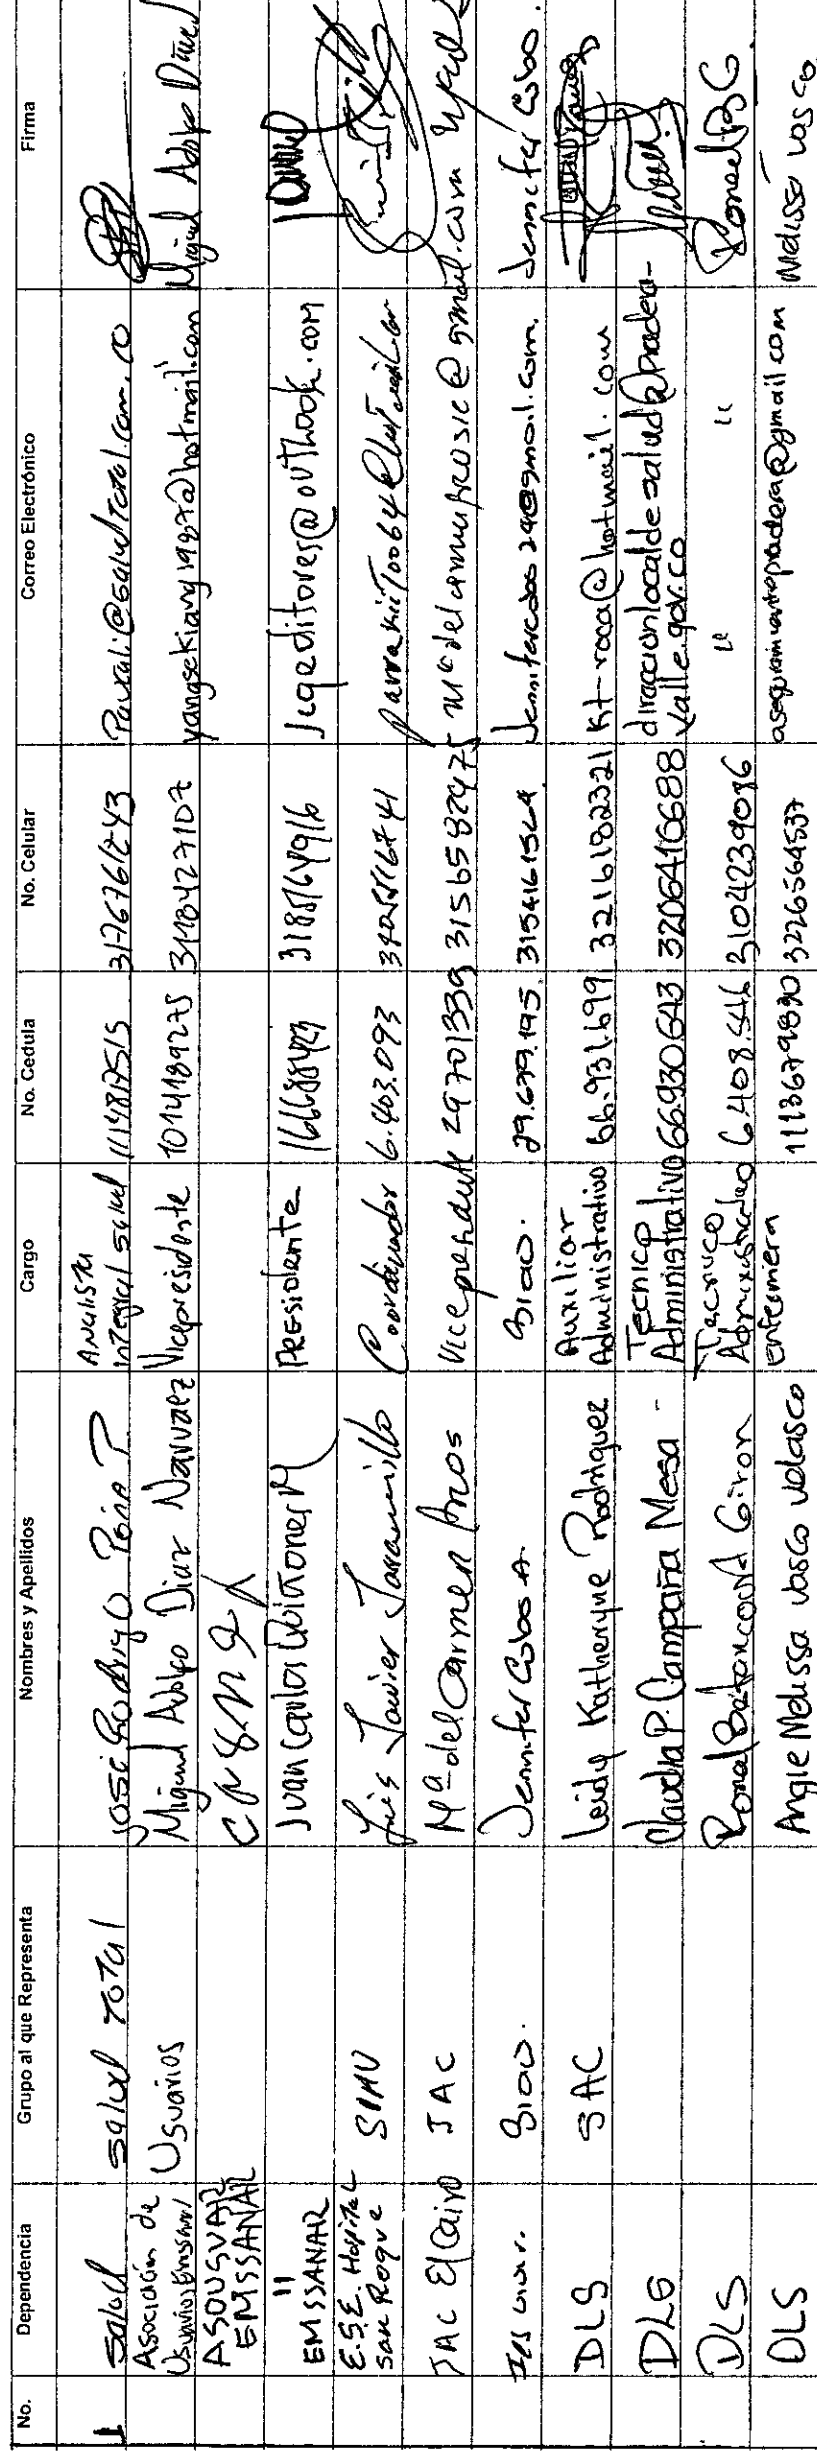 No. Dependencia Grupo al que Representa Nombres y Apellidos Cargo No. Cedula No. Celular Correo Electrónico Firma
1 Salud Salud Total José Rodrigo Peña P Analista integral salud 3176761243 Paurali@saludtotal.com.co
Asociación de Usuarios Emssanar Usuarios Miguel Adolfo Diaz Narvaez Vicepresidente 1014189275 3178427107 yangsekiang1987@hotmail.com Miguel Adolfo Diaz
ASOUSUAR EMSSANAR
" EMSSANAR Juan Carlos Quiñonez M Presidente 3188164916 jcqeditores@outlook.com
E.S.E. Hospital San Roque SIAU Luis Javier Jaramillo Coordinador 6.403.093
JAC El Cairo JAC Mª del Carmen Vicepresidente 29701339 3156587475
Siau. Jennifer Cobo A. Siau. 29.679.195. 3154161524. Jennifer Cobo.
DLS SAC Leidy Katheryne Rodriguez Auxiliar Administrativo 66.931.699 3216182321 kt-roca@hotmail.com
DLS Claudia P. Campaña Mesa - Tecnico Administrativo 66.930.643 3206416688 direccionlocaldesalud@pradera-valle.gov.co
DLS Ronal Betancourt Giron Tecnico Administrativo 6.408.546 3104239096 " " Ronal BG
DLS Angie Melissa Vasco Velasco Enfermera 1113679830 3226564537 aseguramientopradera@gmail.com Melissa Vasco.